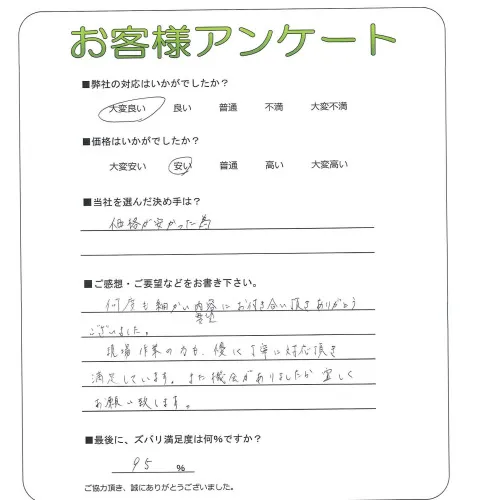 お客様アンケート
■弊社の対応はいかがでしたか？
大変良い 良い 普通 不満 大変不満
■価格はいかがでしたか？
大変安い 安い 普通 高い 大変高い
■当社を選んだ決め手は？
価格が安かった為
■ご感想・ご要望などをお書き下さい。
何度も細かい内容にお付き合い頂きありがとう
要望
ございました。
現場作業の方も、優しく丁寧に対応頂き
満足しています。また機会がありましたら宜しく
お願い致します。
■最後に、ズバリ満足度は何%ですか？
95 %
ご協力頂き、誠にありがとうございました。